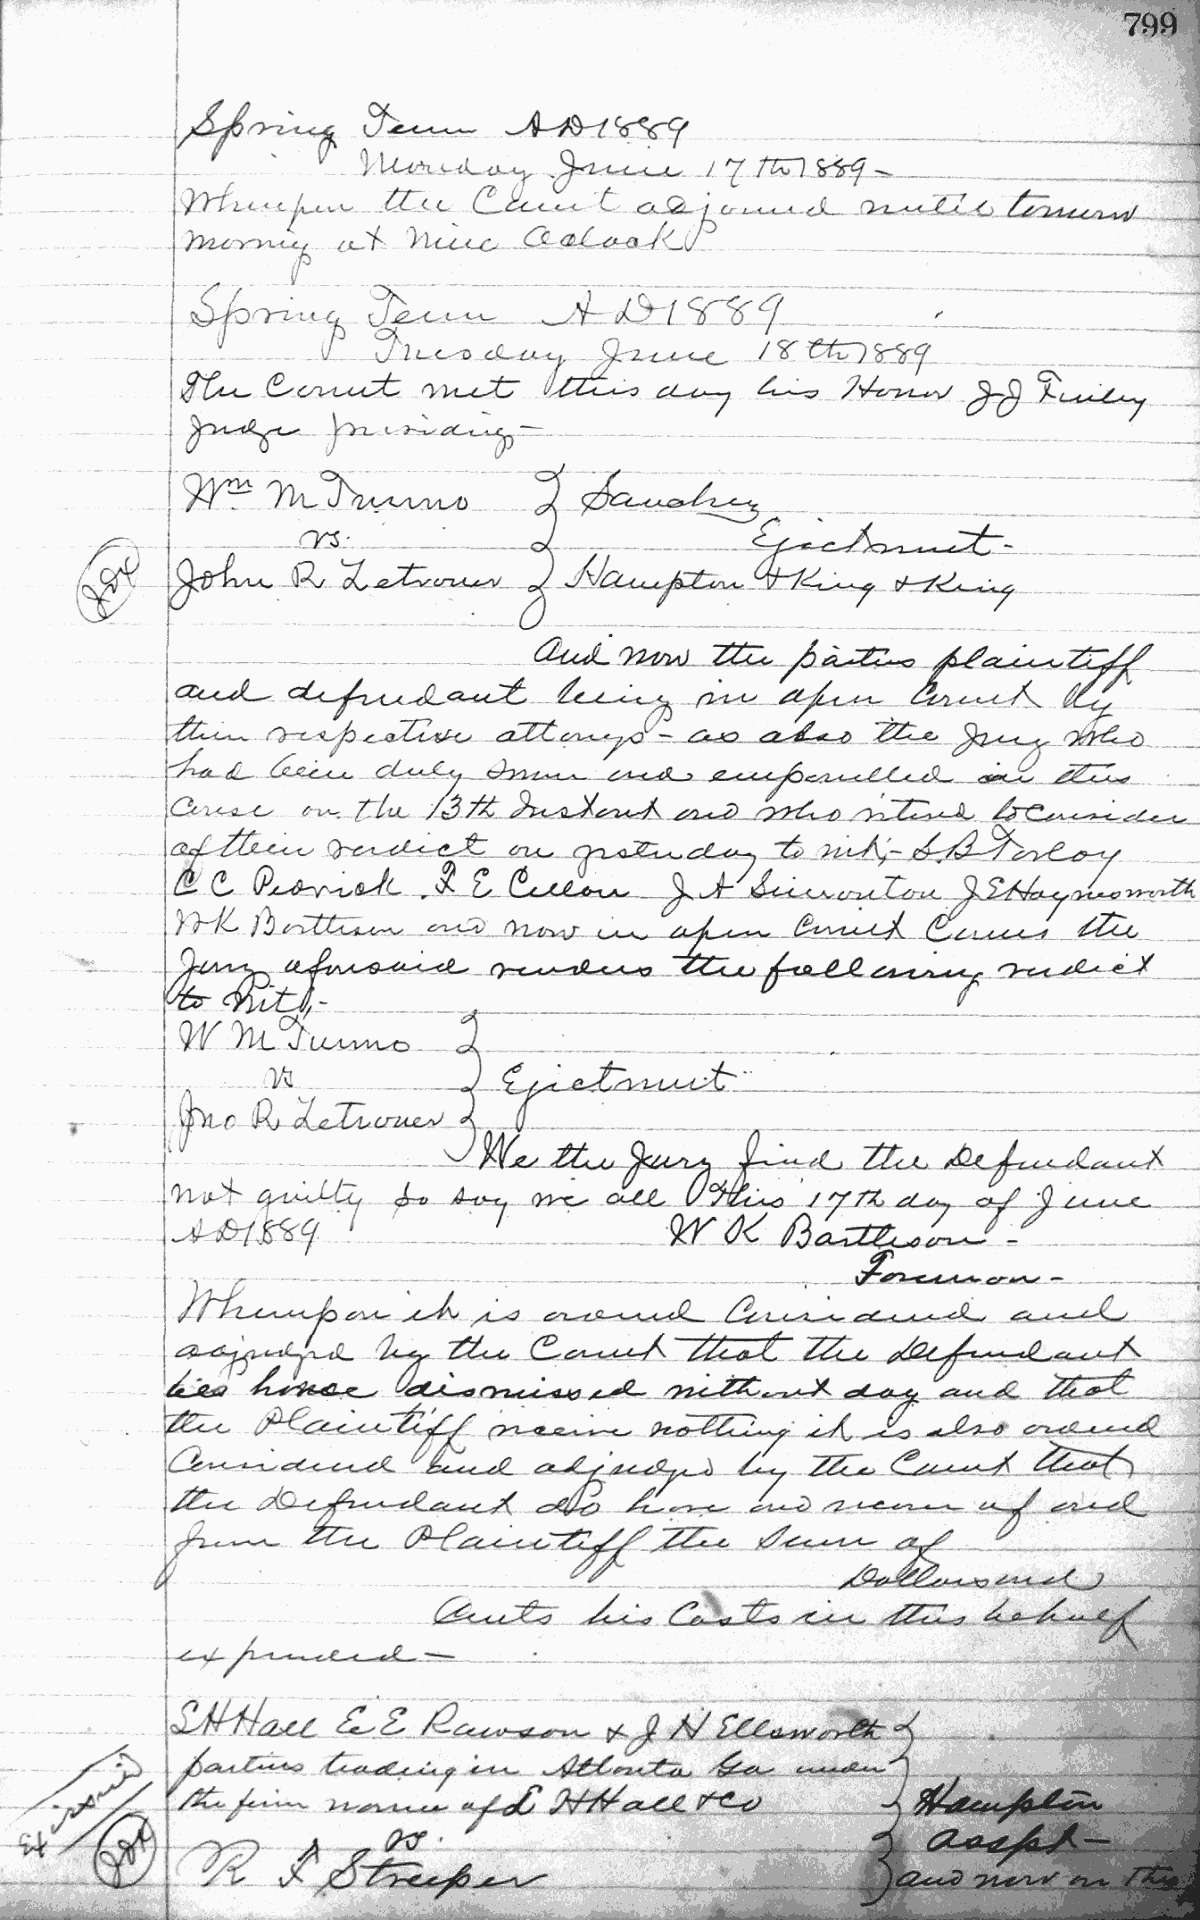 799
Spring Term AD1889
Monday June 17th 1889-
Whereupon the Court adjorned until tomorrow
morning at Nine Oclock
Spring Term AD1889
Tuesday June 18th 1889
The Court met this day his Honor J J Finley
Judge presiding-
Wm M
vs.
Ejectment-
Jdx
John R Zetrouer Hampton & King & King
And now the parties plaintiff
and defendant being in open Court by
their respective attorneys - as also the Jury who
had been duly sworn and empanelled in this
cause on the 13th Instant and who retired to consider
of their verdict on yesterday to wit;- S B
C C Pedrick F E J A Simonton J E Haynesworth
W K Bartleson and now in open Court Comes the
Jury aforesaid renders the following verdict
to wit;-
W M
vs
Ejectment
Jno R Zetrouer
We the Jury find the Defendant
not guilty so say we all This 17th day of June
AD1889 W K Bartleson -
Foreman-
Whereupon it is orderd Considerd and
adjudged by the Court that the Defendant
hence dismissed without day and that
the Plaintiff receive nothing it is also orderd
Considerd and adjudged by the Court that
the Defendant do have and recover of and
from the Plaintiff the sum of
Dollars and
Cents his Costs in this behalf
expended-
S H Hall E E Rawson & J N Ellsworth
parties trading in Atlanta Ga under
the firm name of S H Hall & Co Hampton
vs. Asspt-
Jdx
R F Streeper and now on this